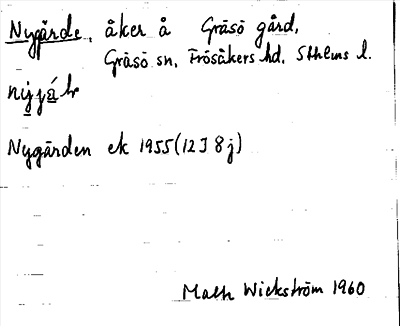 Nygärde, åker å Gräsö gård,
Gräsö sn, Frösåkers hd, Sthlms l.
Nygärden ek 1955 (12J 8j)
Math Wickström 1960